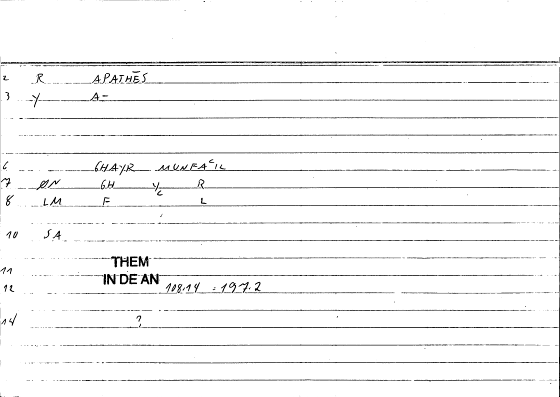 2 R APATHĒS
3 Y A-
6 GHAYR MUNFAʿIL
7 ØN GH Y R
8 LM F L
10 SA
11 THEM
12 IN DE AN 108.14 = 197.2
14 ?